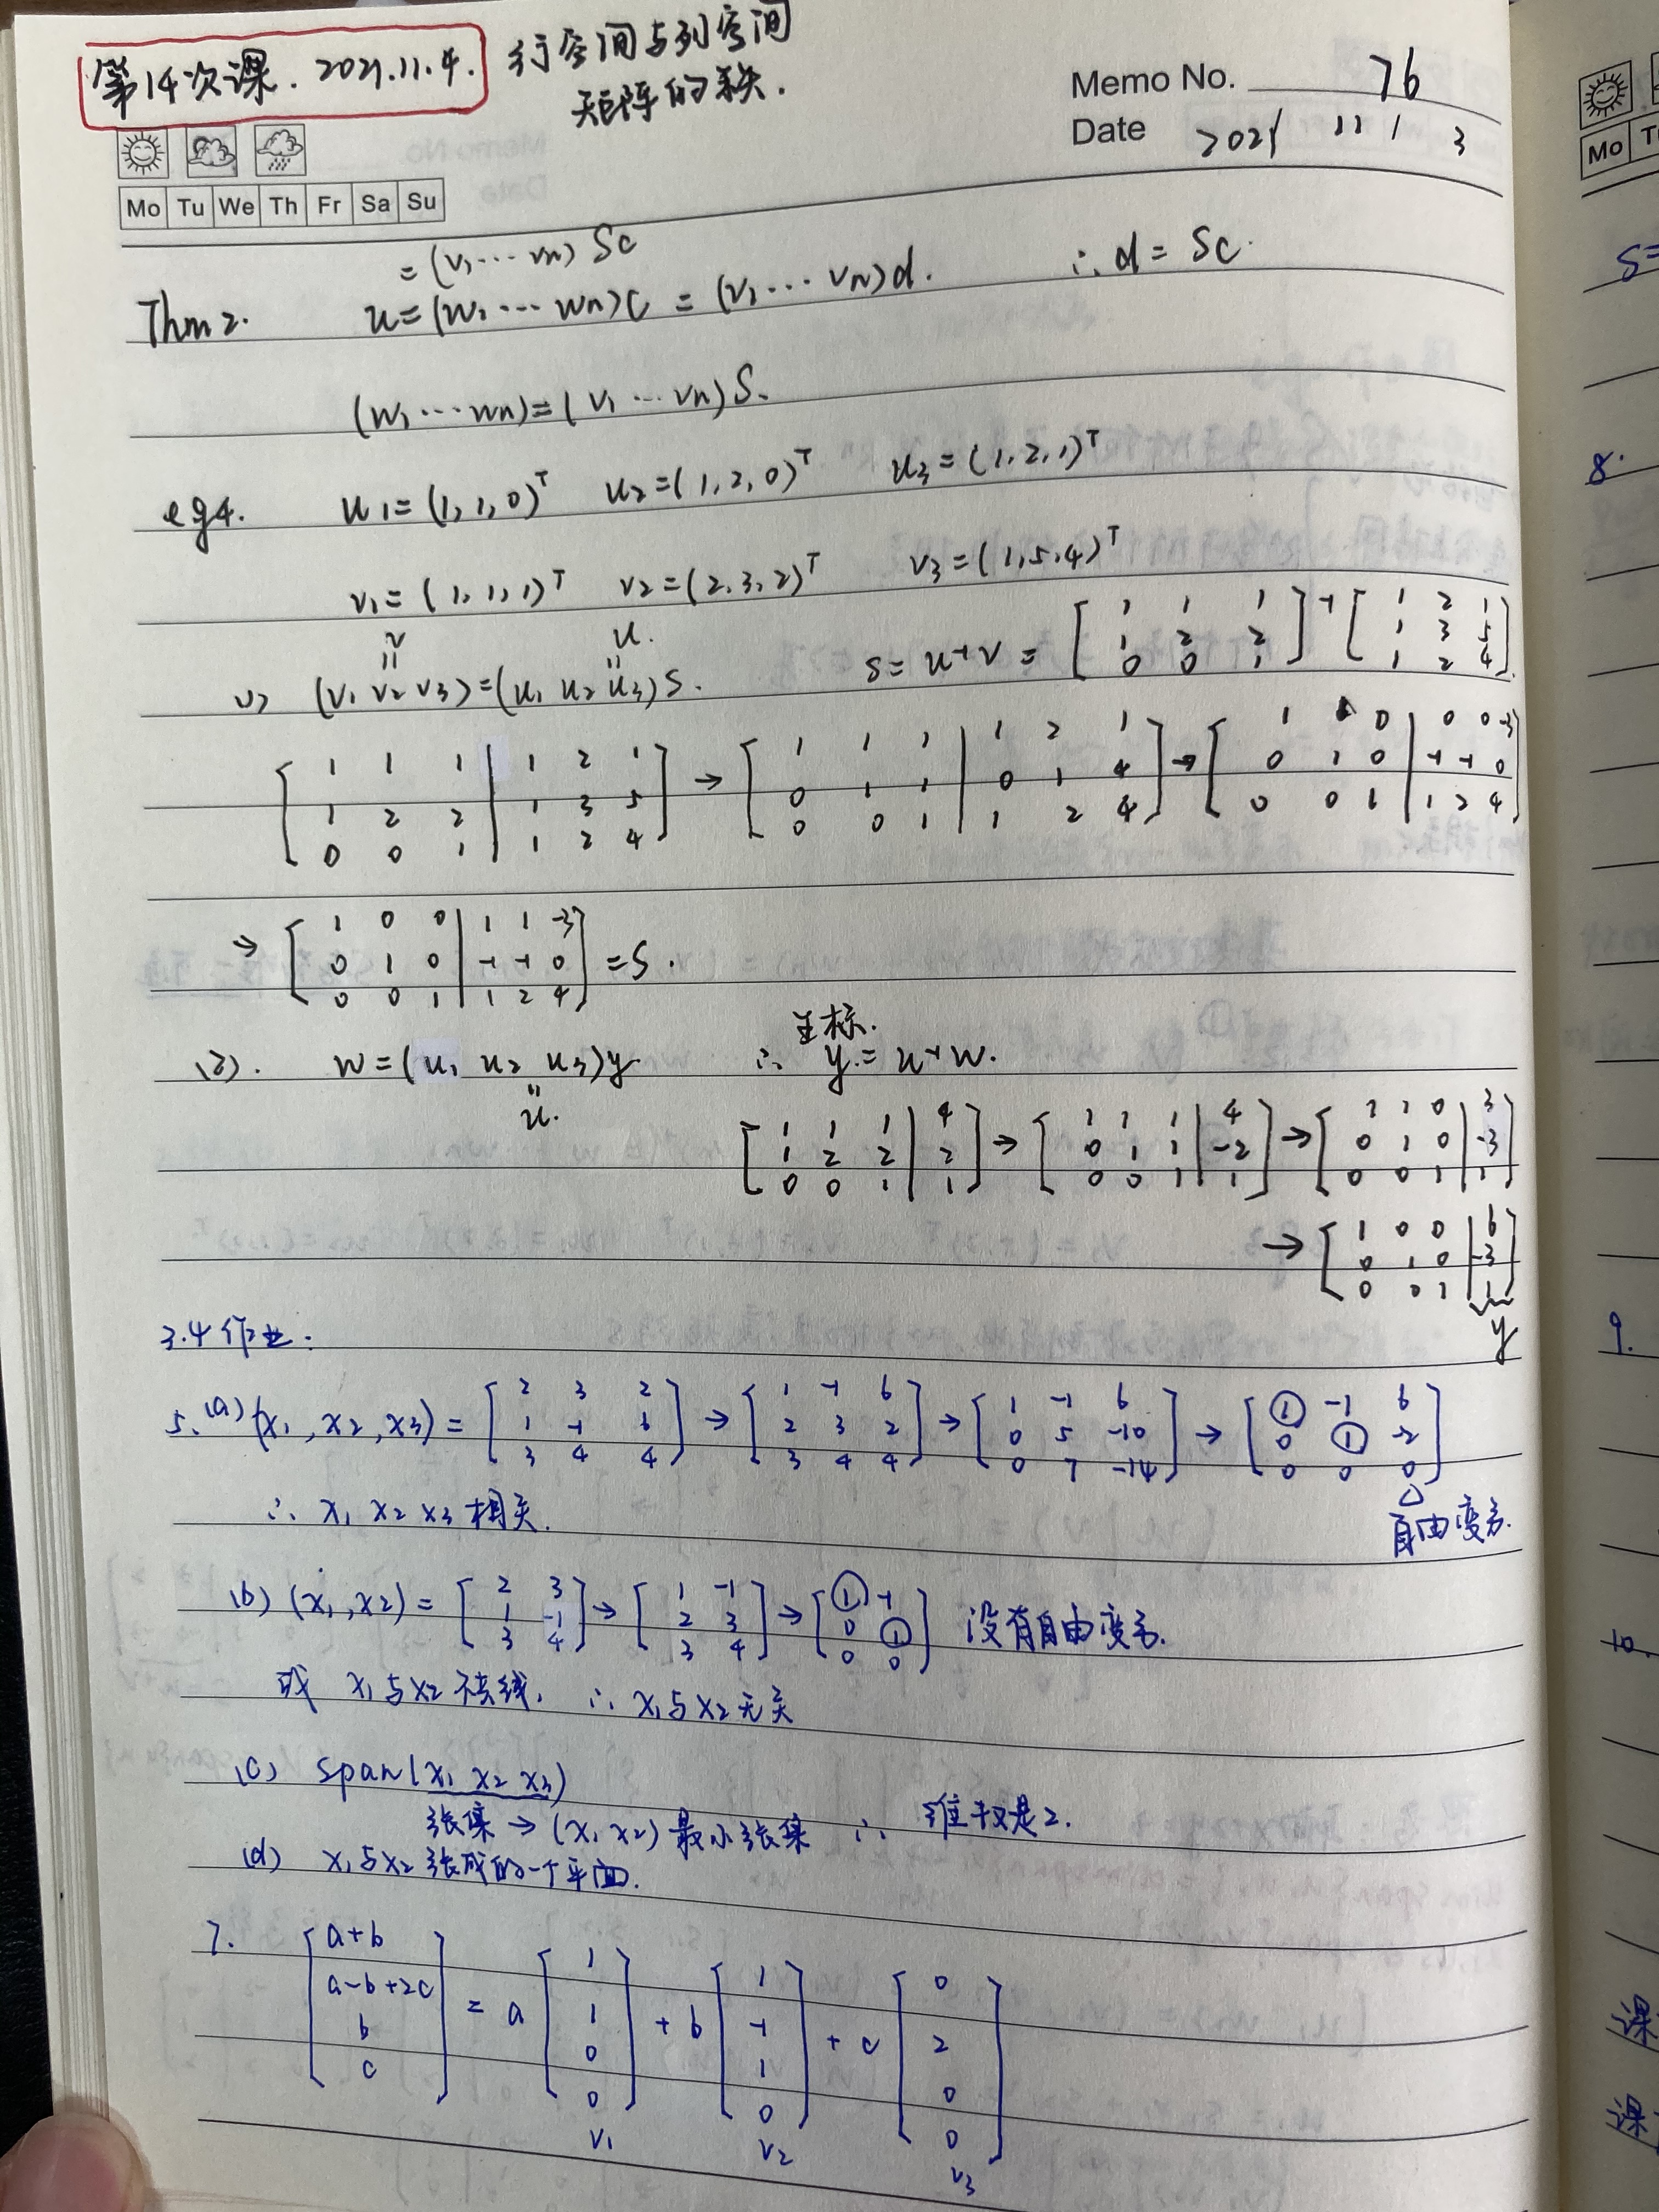 第14次课. 2021.11.4. 行空间与列空间
矩阵的秩.
Memo No. 76
Date 2021 11 / 3
Mo Tu We Th Fr Sa Su
= (v₁ ⋯ vn) Sc
Thm 2. u = (w₁ ⋯ wn)c = (v₁ ⋯ vn)d. ∴ d = Sc.
(w₁ ⋯ wn) = (v₁ ⋯ vn)S.
eg4. u₁ = (1, 1, 0)ᵀ u₂ = (1, 2, 0)ᵀ u₃ = (1, 2, 1)ᵀ
v₁ = (1, 1, 1)ᵀ v₂ = (2, 3, 2)ᵀ v₃ = (1, 5, 4)ᵀ
V U.
(1) (v₁ v₂ v₃) = (u₁ u₂ u₃)S. S = U⁻¹V = [1 1 1; 1 2 2; 0 0 1]⁻¹ [1 2 1; 1 3 5; 1 2 4].
[1 1 1 | 1 2 1; 1 2 2 | 1 3 5; 0 0 1 | 1 2 4] → [1 1 1 | 1 2 1; 0 1 1 | 0 1 4; 0 0 1 | 1 2 4] → [1 1 0 | 0 0 -3; 0 1 0 | -1 -1 0; 0 0 1 | 1 2 4]
→ [1 0 0 | 1 1 -3; 0 1 0 | -1 -1 0; 0 0 1 | 1 2 4] = S.
坐标.
(2). w = (u₁ u₂ u₃)y. ∴ y = U⁻¹w.
U.
[1 1 1 | 4; 1 2 2 | 2; 0 0 1 | 1] → [1 1 1 | 4; 0 1 1 | -2; 0 0 1 | 1] → [1 1 0 | 3; 0 1 0 | -3; 0 0 1 | 1]
→ [1 0 0 | 6; 0 1 0 | -3; 0 0 1 | 1]
y
3.4 作业:
5. (a) (x₁, x₂, x₃) = [2 3 2; 1 -1 6; 3 4 4] → [1 -1 6; 2 3 2; 3 4 4] → [1 -1 6; 0 5 -10; 0 7 -14] → [1 -1 6; 0 1 -2; 0 0 0]
∴ x₁ x₂ x₃ 相关. 自由变多.
(b) (x₁, x₂) = [2 3; 1 -1; 3 4] → [1 -1; 2 3; 3 4] → [1 -1; 0 1; 0 0] 没有自由变多.
或 x₁与x₂不共线, ∴ x₁与x₂无关
(c) span(x₁ x₂ x₃)
张集 → (x₁ x₂) 最小张集 ∴ 维数是2.
(d) x₁与x₂张成的一个平面.
7. [a+b; a-b+2c; b; c] = a [1; 1; 0; 0] + b [1; -1; 1; 0] + c [0; 2; 0; 0]
v₁ v₂ v₃
Mo
S=
8.
9.
10.
课
课